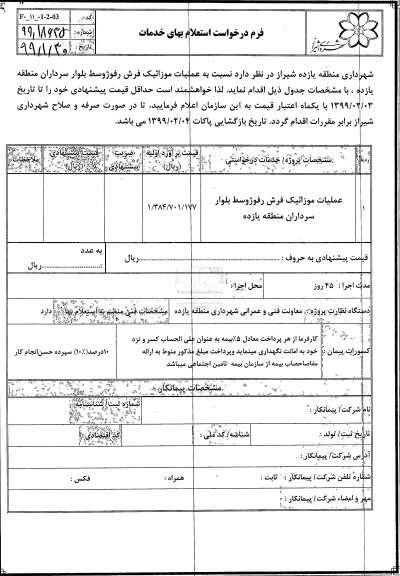 فرم درخواست استعلام بهای خدمات
کد: F-_11_-1-2-03
شماره:
تاریخ: ۹۹/۱/۳۰
شهرداری منطقه یازده شیراز در نظر دارد نسبت به عملیات موزائیک فرش رفوژوسط بلوار سرداران منطقه
یازده ، با مشخصات جدول ذیل اقدام نماید. لذا خواهشمند است حداقل قیمت پیشنهادی خود را تا تاریخ
۱۳۹۹/۰۲/۰۳ با یکماه اعتبار قیمت به این سازمان اعلام فرمایید، تا در صورت صرفه و صلاح شهرداری
شیراز برابر مقررات اقدام گردد. تاریخ بازگشایی پاکات ۱۳۹۹/۰۲/۰۴ می باشد.
ردیف
مشخصات پروژه/ خدمات درخواستی
قیمت برآورد اولیه (ریال)
ضریب پیشنهادی
قیمت پیشنهادی (ریال)
ملاحظات
۱
عملیات موزائیک فرش رفوژوسط بلوار
سرداران منطقه یازده
۱/۳۸۴/۷۰۱/۱۷۷
قیمت پیشنهادی به حروف : ریال
به عدد
: ریال
مدت اجرا: ۴۵ روز
محل اجرا:
دستگاه نظارت پروژه: معاونت فنی و عمرانی شهرداری منطقه یازده
مشخصات فنی منضم به استعلام بها : دارد
کسورات پیمان :
کارفرما از هر پرداخت معادل ۵٪بیمه به عنوان علی الحساب کسر و نزد
خود به امانت نگهداری مینماید وپرداخت مبلغ مذکور منوط به ارائه
مفاصاحساب بیمه از سازمان بیمه تامین اجتماعی میباشد
۱۰درصد(۱۰٪) سپرده حسن‌انجام کار
مشخصات پیمانکار
نام شرکت/ پیمانکار :
شماره ثبت/ شناسنامه :
تاریخ ثبت/ تولد :
شناسه/ کد ملی :
کد اقتصادی :
آدرس شرکت/ پیمانکار :
شماره تلفن شرکت/ پیمانکار : ثابت : همراه : فکس :
مهر و امضاء شرکت/ پیمانکار :